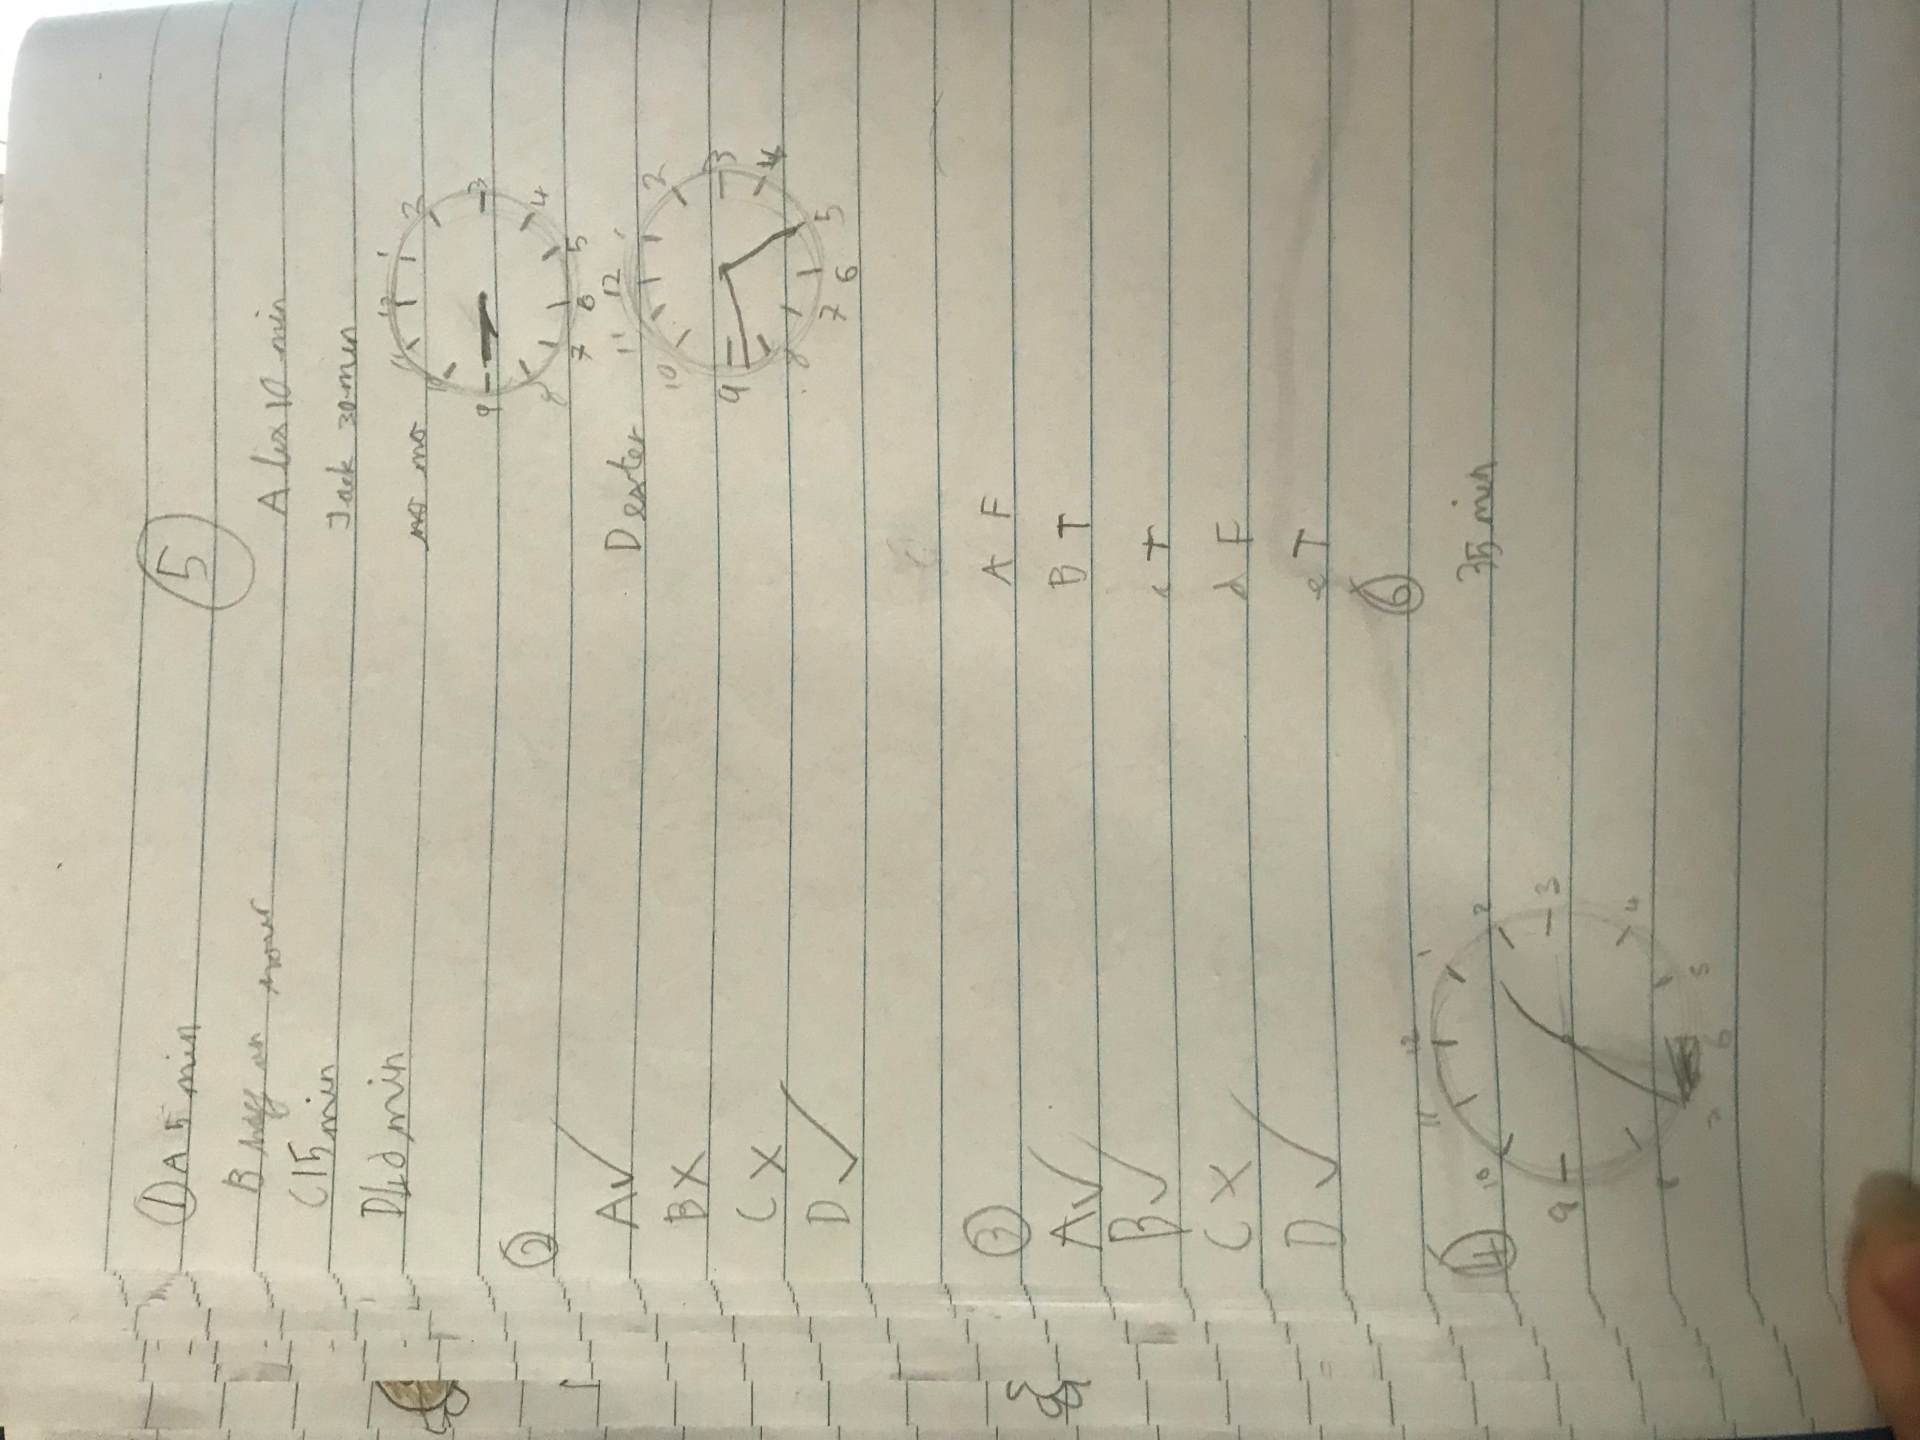 1 A 5 min
B half an hour
C 15 min
D 40 min
2
A ✓
B X
C X
D ✓
3
A ✓
B ✓
C X
D ✓
4
12
11 1
10 2
9 3
4
7 5
6
5
Alex 10 min
Jack 30 min
12
11 1
2
9 3
8 4
7 6 5
Dexter
12
11 1
10 2
9 3
8 4
7 6 5
A F
B T
c T
d F
e T
6
35 min